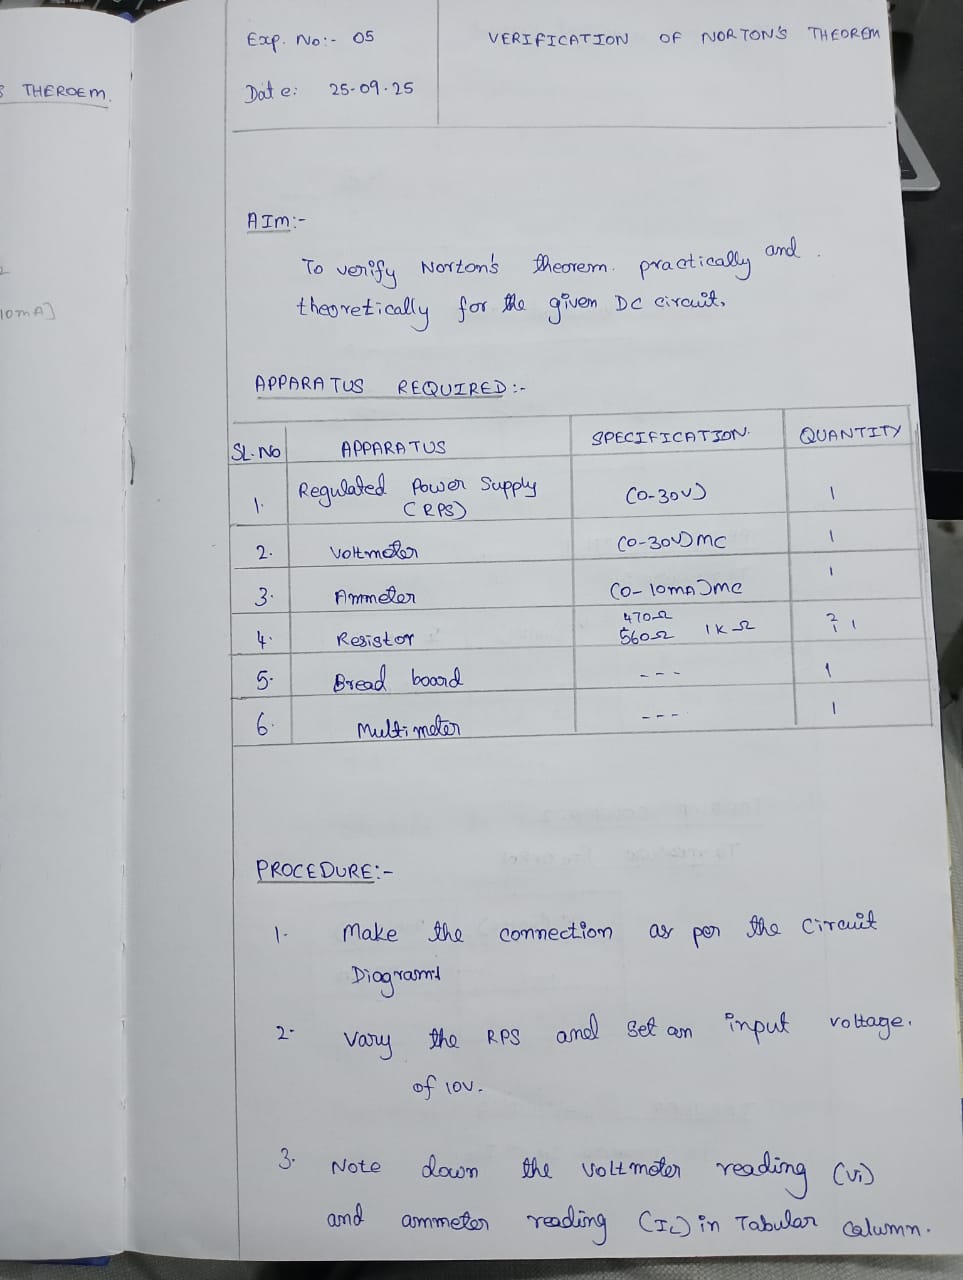 S THEROEM.
10mA]
Exp. No:- 05
VERIFICATION OF NORTON'S THEOREM
Date: 25-09-25
AIM:-
To verify Norton's theorem. practically and.
theoretically for the given DC circuit.
APPARATUS REQUIRED:-
SL.NO APPARATUS SPECIFICATION. QUANTITY
1. Regulated Power Supply (0-30V) 1
(RPS)
2. Voltmeter (0-30V)MC 1
3. Ammeter (0-10mA)MC 1
4. Resistor 470Ω 2
560Ω 1KΩ 1 1
5. Bread board --- 1
6. Multimeter --- 1
PROCEDURE:-
1. Make the connection as per the circuit
Diagram
2. Vary the RPS and set an input voltage.
of 10V.
3. Note down the voltmeter reading (Vi)
and ammeter reading (IL) in Tabular Column.